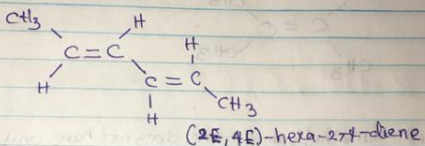 CH3
H
C=C
H
H
C=C
H
CH3
(2E, 4E)-hexa-2,4-diene